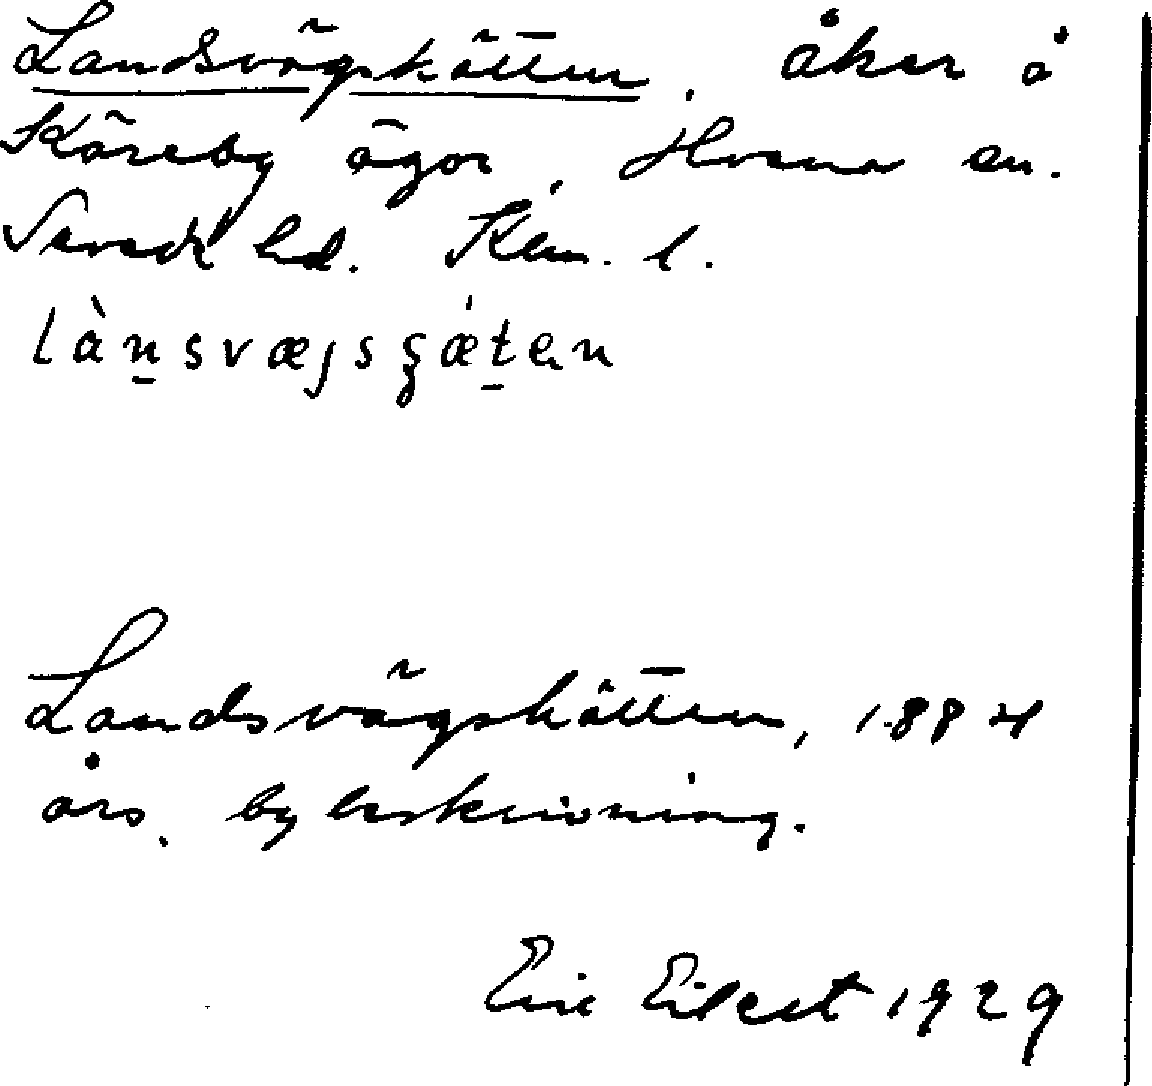 Landsvägskätten, åker å
Käreby ägor, Hvena sn.
Sevede hd. Klm. l.
Landsvägskätten, 1884
års. bybeskrivning.
Eric Eilert 1929